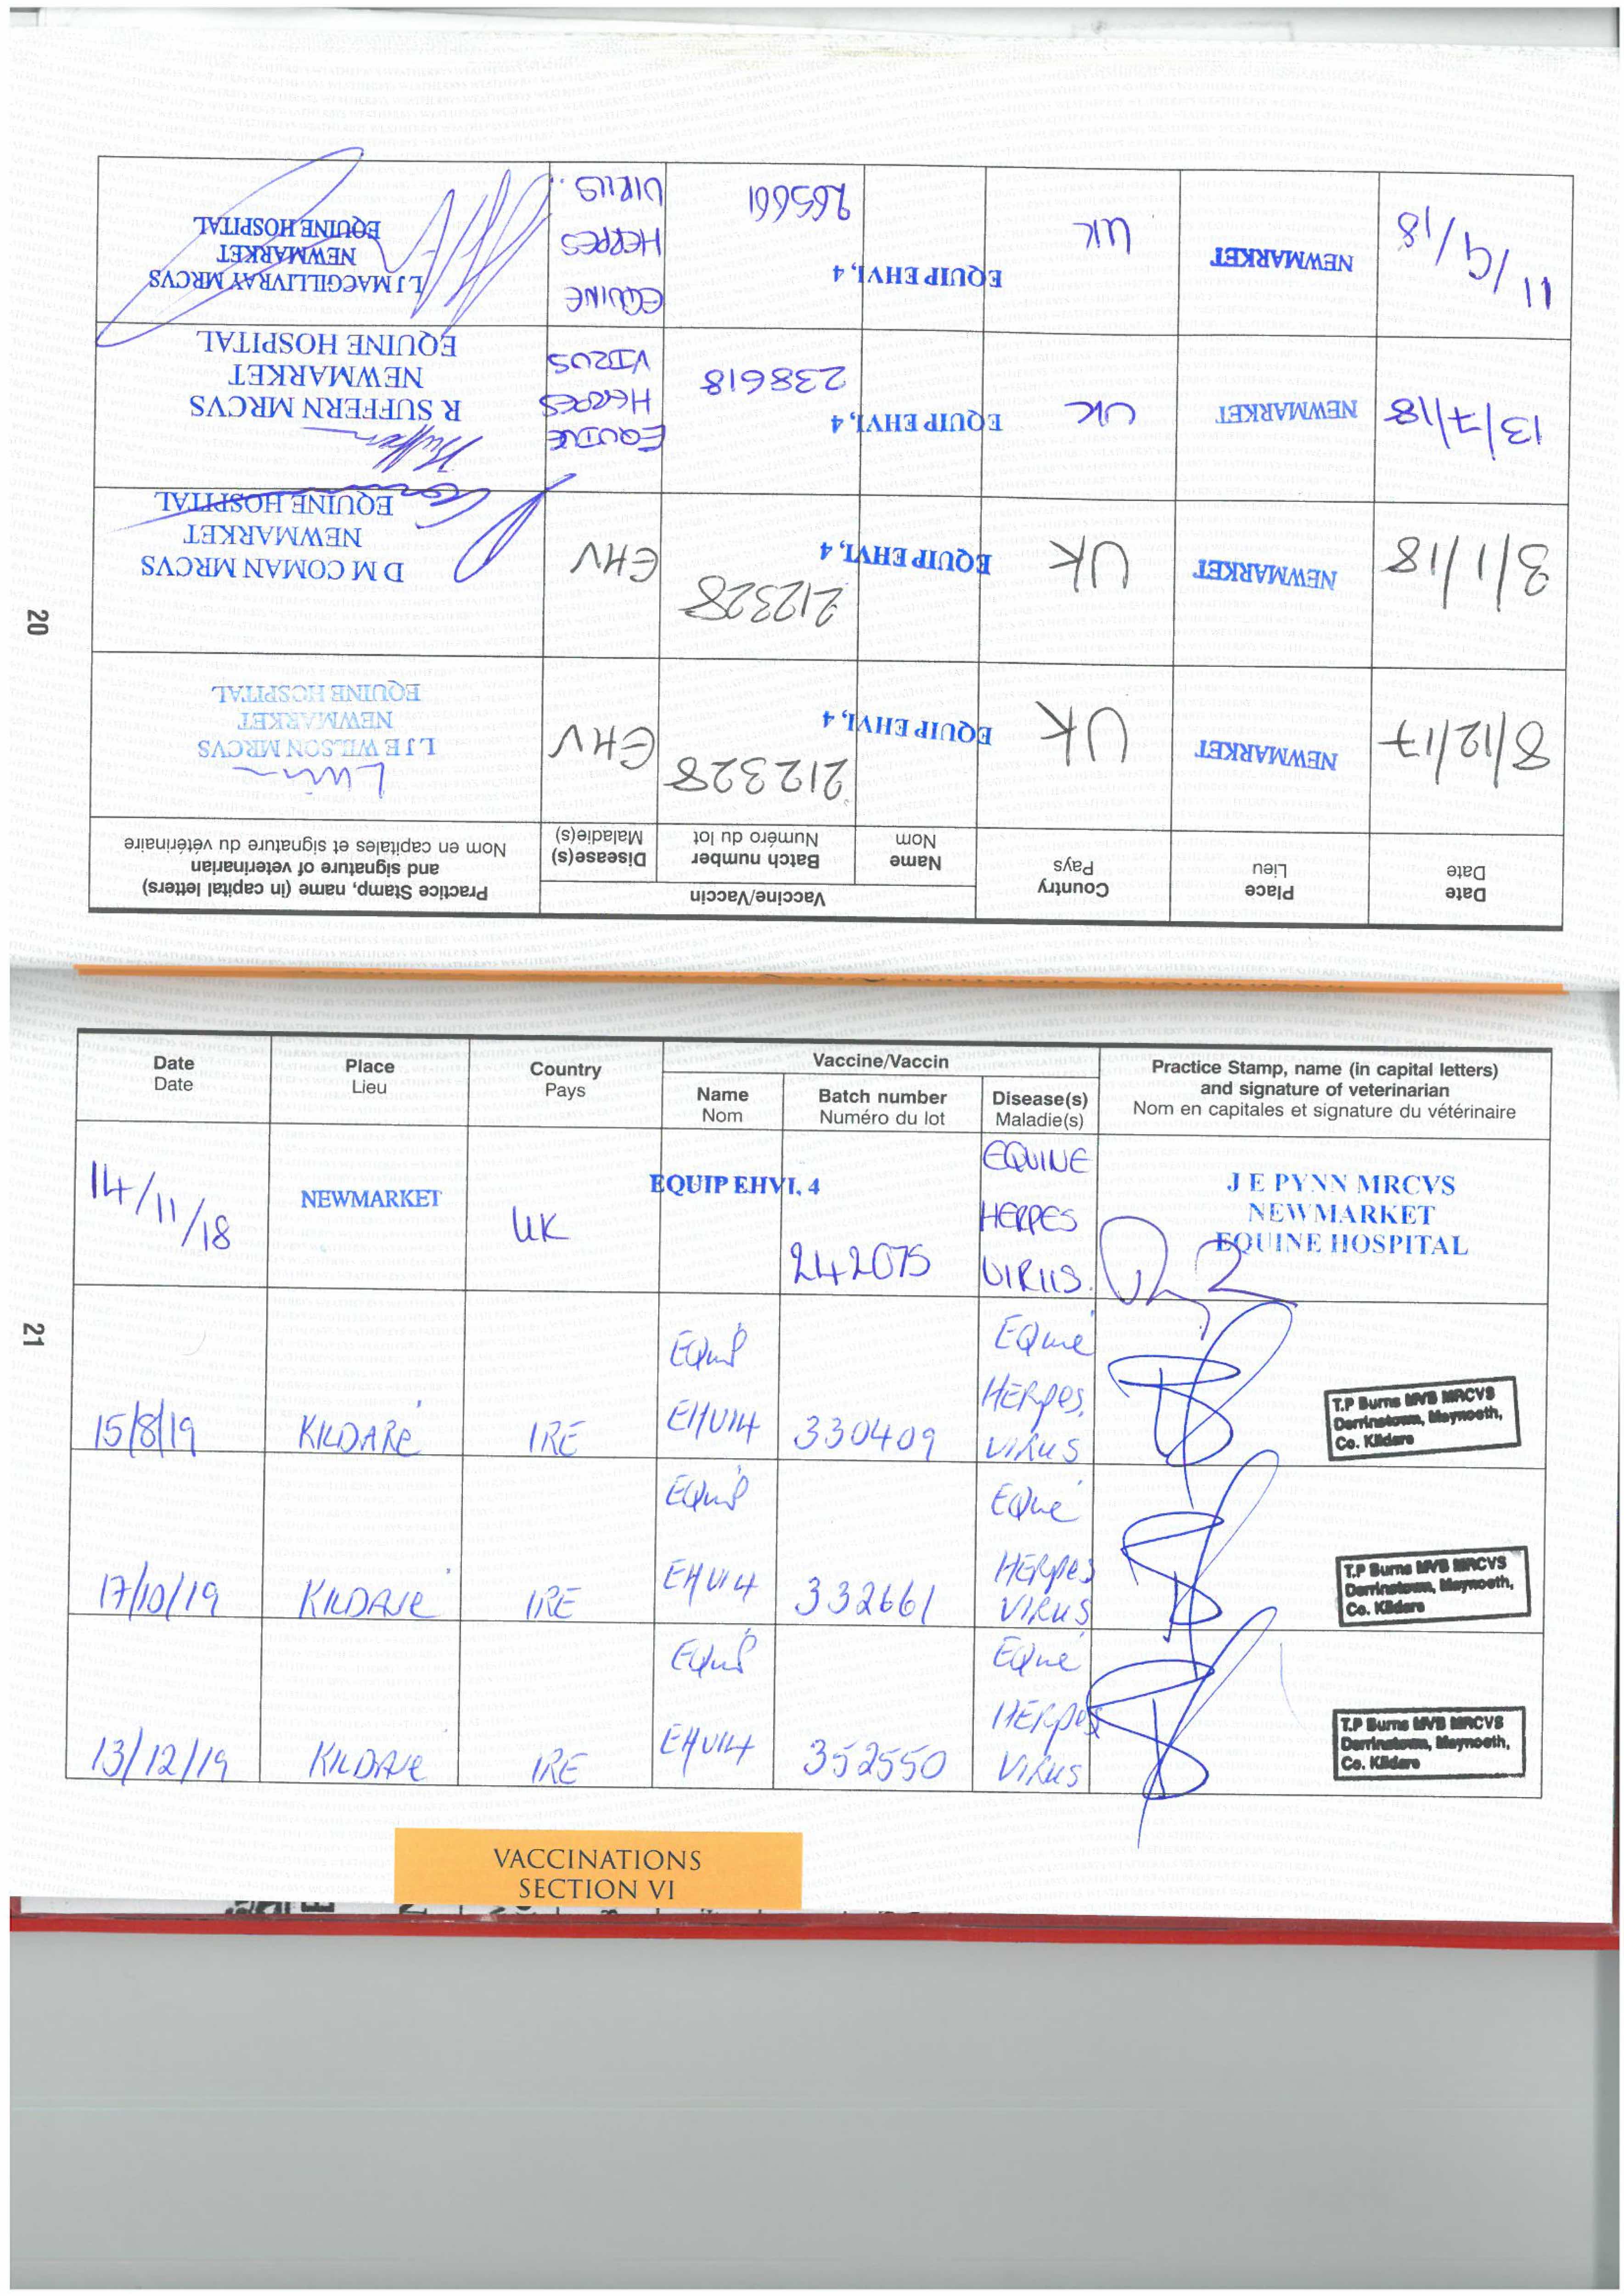 20
Date
Date
Place
Lieu
Country
Pays
Vaccine/Vaccin
Name
Nom
Batch number
Numéro du lot
Disease(s)
Maladie(s)
Practice Stamp, name (in capital letters)
and signature of veterinarian
Nom en capitales et signature du vétérinaire
8/12/17
NEWMARKET
UK
EQUIP EHVI, 4
212328
EHV
L J E WILSON MRCVS
NEWMARKET
EQUINE HOSPITAL
3/1/18
NEWMARKET
UK
EQUIP EHVI, 4
212328
EHV
D M COMAN MRCVS
NEWMARKET
EQUINE HOSPITAL
13/7/18
NEWMARKET
UK
EQUIP EHVI, 4
238618
EQUINE
HERPES
VIRUS
R SUFFERN MRCVS
NEWMARKET
EQUINE HOSPITAL
11/9/18
NEWMARKET
UK
EQUIP EHVI, 4
265661
EQUINE
HERPES
VIRUS.
L J MACGILLIVRAY MRCVS
NEWMARKET
EQUINE HOSPITAL
21
Date
Date
Place
Lieu
Country
Pays
Vaccine/Vaccin
Name
Nom
Batch number
Numéro du lot
Disease(s)
Maladie(s)
Practice Stamp, name (in capital letters)
and signature of veterinarian
Nom en capitales et signature du vétérinaire
14/11/18
NEWMARKET
UK
EQUIP EHVI, 4
242075
EQUINE
HERPES
VIRUS.
J E PYNN MRCVS
NEWMARKET
EQUINE HOSPITAL
15/8/19
KILDARE
IRE
EQuiP
EHV14
330409
EQuine
HERpes
VIRUS
T.P Burns MVB MRCVS
Derrinstown, Maynooth,
Co. Kildare
17/10/19
KILDARE
IRE
EQuiP
EHV14
332661
EQuine
HERpes
VIRUS
T.P Burns MVB MRCVS
Derrinstown, Maynooth,
Co. Kildare
13/12/19
KILDARE
IRE
EQuiP
EHV14
352550
EQuine
HERpes
VIRUS
T.P Burns MVB MRCVS
Derrinstown, Maynooth,
Co. Kildare
VACCINATIONS
SECTION VI